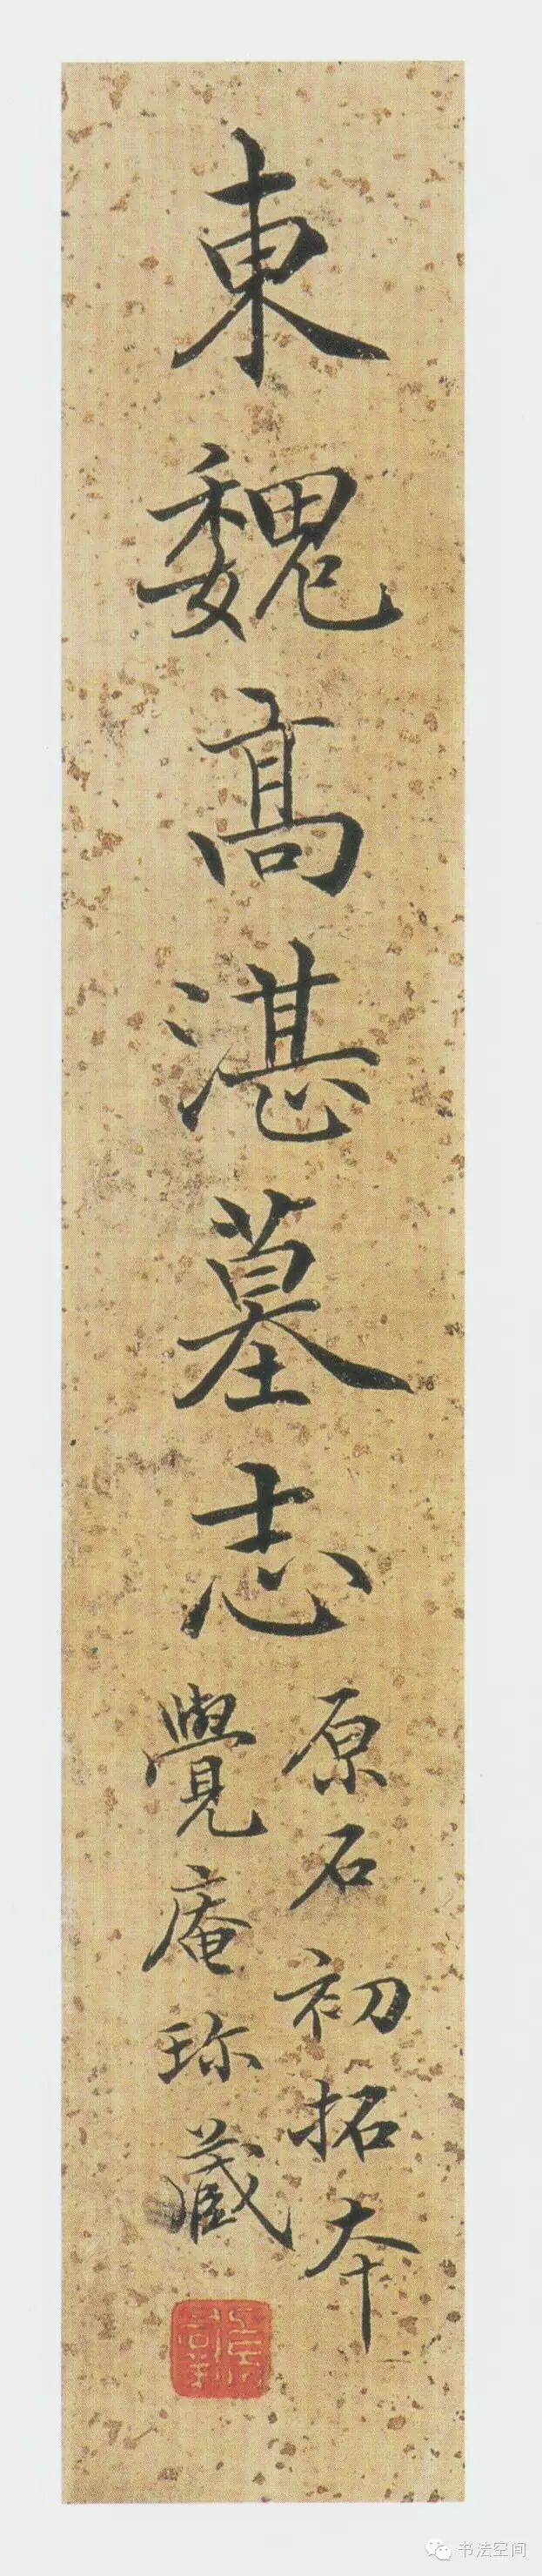 東魏高湛墓志
原石初拓本
覺庵珎蔵
书法空间